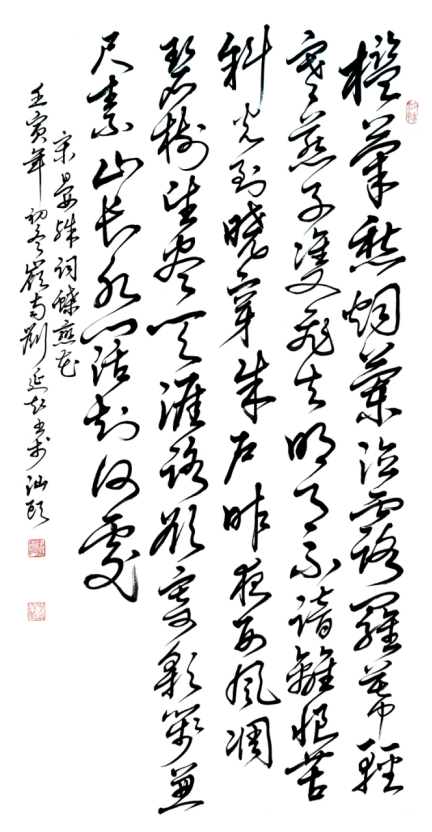 檻菊愁烟蘭泣露羅幕輕
寒燕子雙飛去明月不諳離恨苦
斜光到曉穿朱户昨夜西風凋
碧樹望盡天涯路欲寄彩箋兼
尺素山長水闊知何處
宋晏殊詞蝶戀花
壬寅年初冬嶺南劉延書於汕頭